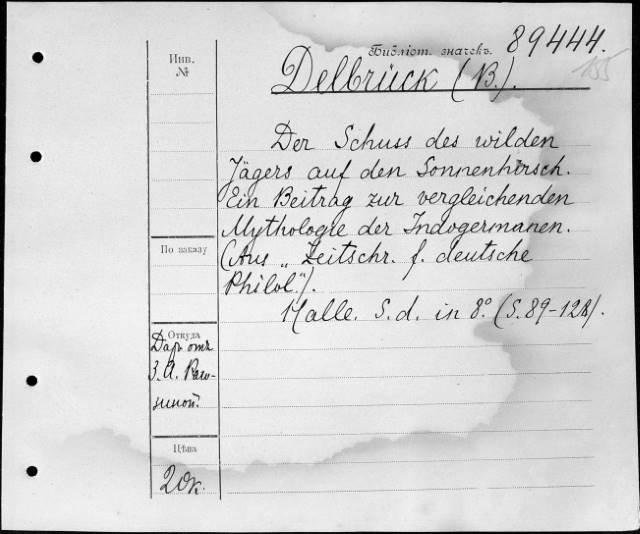 Библіот. значекъ. 89444.
155
Инв.
№
Delbrück (B.).
Der Schuss des wilden
Jägers auf den Sonnenhirsch.
Ein Beitrag zur vergleichenden
Mythologie der Indogermanen.
(Aus „Zeitschr. f. deutsche
Philol.").
Halle. S.d. in 8º. (S. 89-128).
По заказу
Откуда
Даръ отъ
З. А. Раго-
зиной.
Цѣна
20к.